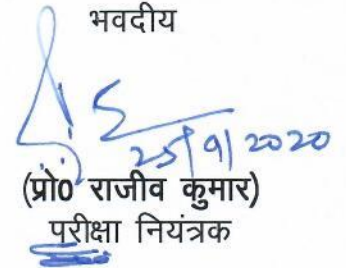 भवदीय
25/9/2020
(प्रो0 राजीव कुमार)
परीक्षा नियंत्रक